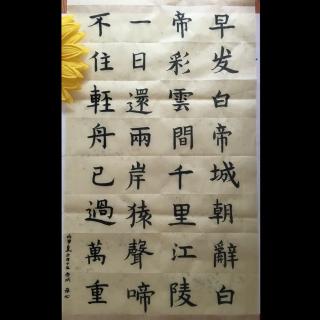 早发白帝城朝辭白
帝彩雲間千里江陵
一日還兩岸猿聲啼
不住輕舟已過萬重